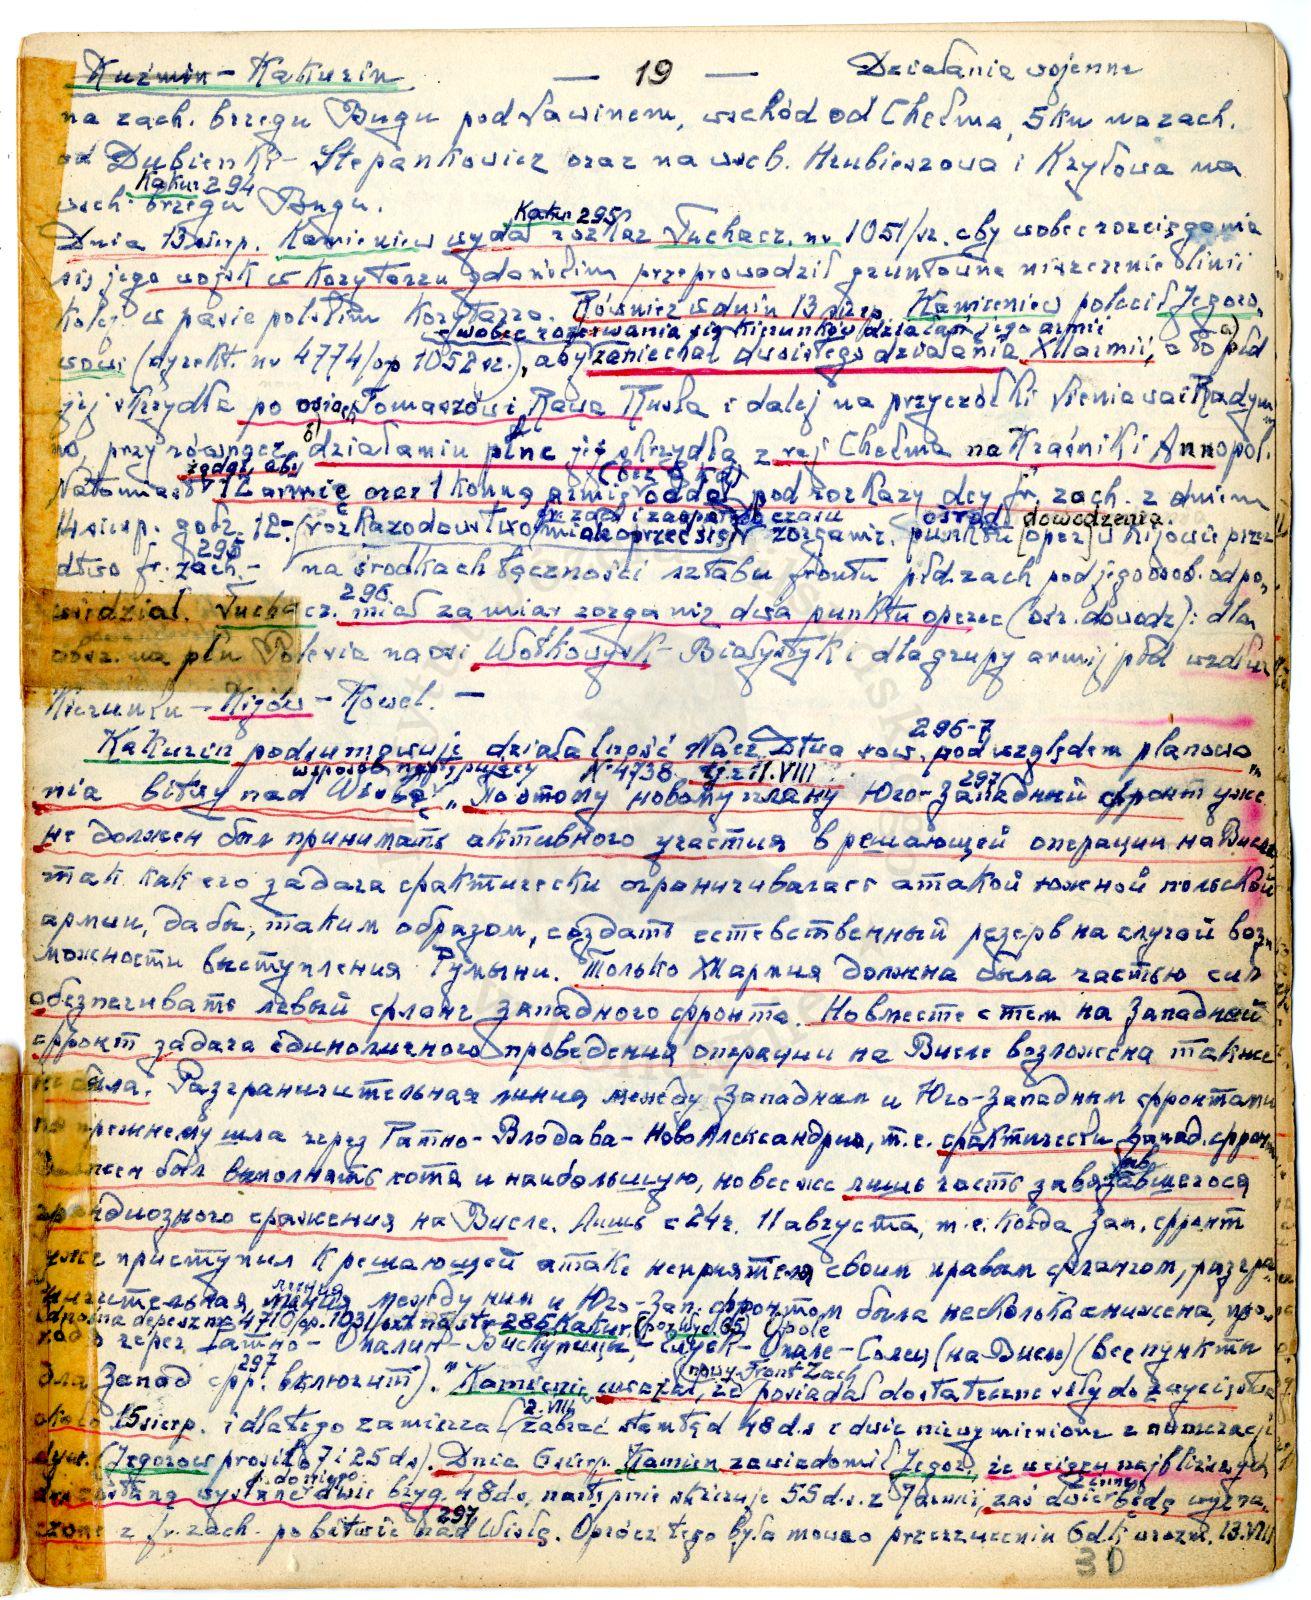 Kuźmin - Kakurin — 19 — Działania wojenne
na zach. brzegu Bugu pod Sawinem, wschód od Chełma, 5 km na zach.
od Dubienki - Stepankowicz oraz na wsch. Hrubieszowa i Kryłowa na
Kakur 294
wsch. brzegu Bugu.
Kakur 295
Dnia 13 sierp. Kamieniew wydał rozkaz Tuchacz. nr 1051/sz. aby wobec rozciągania
się jego wojsk w Korytarzu gdańskim przeprowadził gruntowne niszczenie linii
kolej. w pasie polskim Korytarza. Również w dniu 13 sierp. Kamieniew polecił Jegoro-
wobec rozerwania się kierunków działań jego armii
wowi (dyrekt. nr 4774/op 1052 sz.), aby zaniechał dwoistego działania XII armii, a to płd a)
jej skrzydła po osiach Tomaszów i Rawa Ruska i dalej na przyczółki Sieniawa i Radym-
no, przy równocz. b) działaniu płnc jej skrzydła z rej Chełma na Kraśnik i Annopol.
żądał, aby (bez 8 kd)
Natomiast 12 armię oraz 1 konną armię oddał pod rozkazy dcy fr. zach. z dniem
fr. zach i zaopatrzenia czasu ośrod dowodzenia.
14 sierp. godz. 12.- (rozkazodawstwo miało oprzeć się zorganiz. punktu [oper] w Kijowie przez
295
dtwo fr. zach. - na środkach łączności sztabu frontu płd. zach pod jego osob. odpo-
296
wiedzial. Tuchacz. miał zamiar zorganiz dwa punkty operac (ośr. dowodz): dla
na płn Polesia na osi Wołkowysk - Białystyk i dla grupy armij płd wzdłuż
kierunku - Kijów - Kowel. -
296-7
Kakurin podsumowuje działalność Nacz. Dtwa sow. pod względem planowa-
w sposób następujący N° 4738 tj z 11.VIII 297
nia bitwy nad Wisłą: "По этому новому плану Юго-Западный фронт уже
не должен был принимать активного участия в решающей операции на Висле
так как его задача фактически ограничивалась атакой южной польской
армии, дабы, таким образом, создать естественный резерв на случай воз-
можности выступления Румыни. Только XII армия должна была частью сил
обезпечивать левый фланг западного фронта. Но вместе с тем на Западный
фронт задача единоличного проведения операции на Висле возложена также
не была. Разграничительная линия между Западным и Юго-Западным фронтами
по прежнему шла через Ратно - Влодава - Ново Александрия, т.е. фактически Запад. фронт
должен был выполнять хотя и наибольшую, но все же лишь часть завязавшегося
грандиозного сражения на Висле. Лишь с 24 ч. 11 августа, т.е. когда зап. фронт
уже приступил к решающей атаке неприятеля своим правым флангом, разгра-
линия
ничительная линия между ним и Юго-Зап. фронтом была несколько снижена, про-
depesz nr 4710/op. 1031/szt na str 286 Kakur. (por wyd. 65) Opole
ходя через Ратно - Опалин - - - Опале - Солец (на Висле) (все пункты
297 (nowy Front Zach
для Запад фр. включит)." Kamieniew uważał, że posiadał dostateczne siły do zajęcia
2.VIII
około 15 sierp. i dlatego zamierzał zabrać stamtąd 48 d.s i dwie niewymienione z numeracji
dyw. (Jegorow prosił o 7 i 25 ds). Dnia 6 sierp. Kamien zawiadomił Jegor., że w ciągu najbliższych
do niego inne
dni zostaną wysłane dwie bryg. 48 ds, następnie skieruje 55 d.s. z 7 armii, zaś dwie będą wyzna-
297
czone z fr. zach. po bitwie nad Wisłą. Oprócz tego była mowa o przerzuceniu 6 dk wrazie. 13.VIII
30